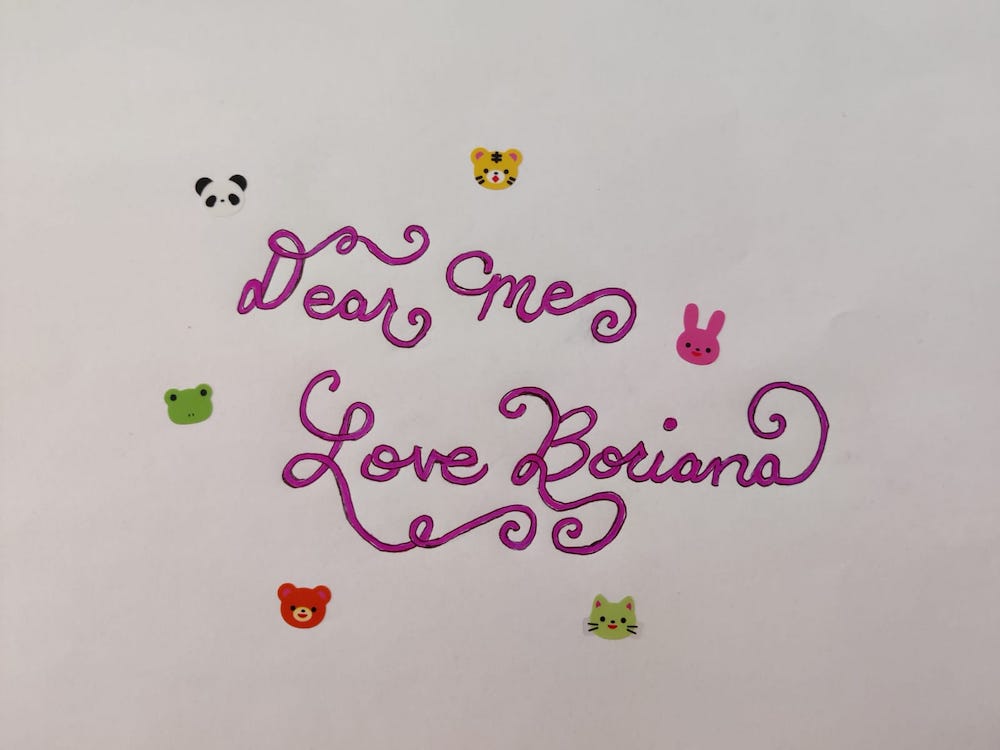 Dear Me
Love Boriana